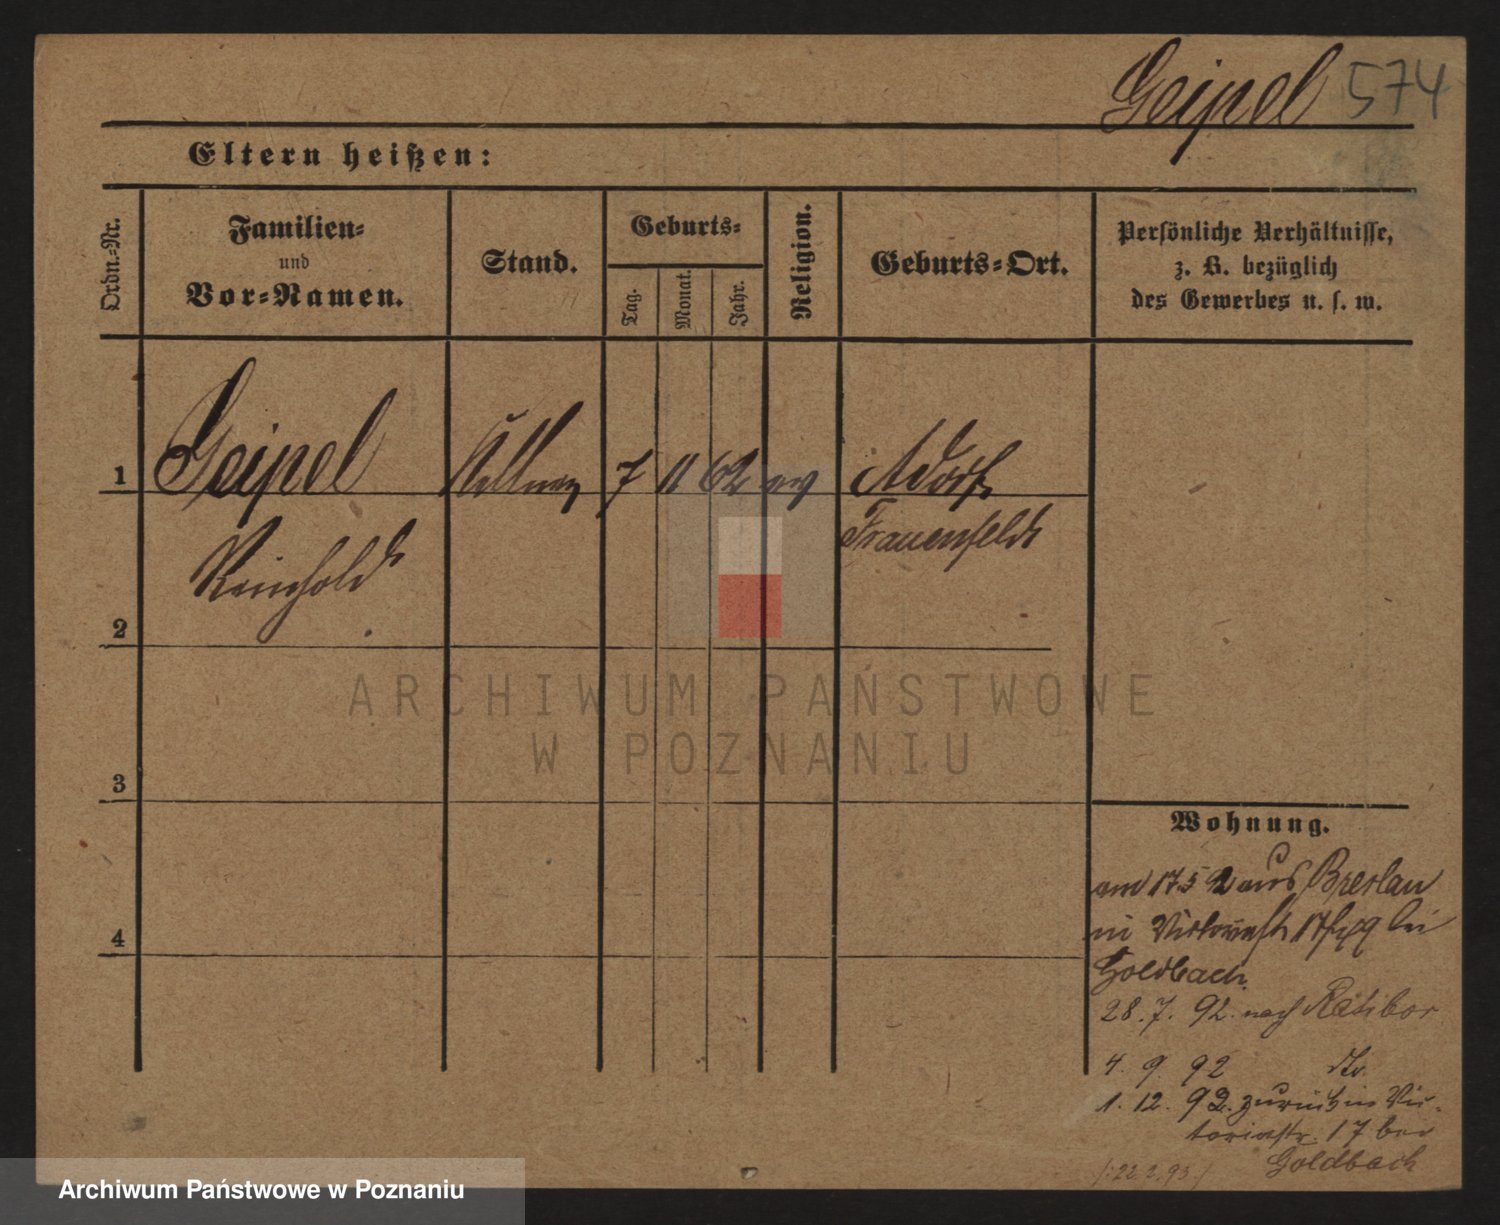 Geipel 574
Eltern heißen:
Ordn.-Nr.
Familien-
und
Vor-Namen.
Stand.
Geburts-
Tag.
Monat.
Jahr.
Religion.
Geburts-Ort.
Persönliche Verhältnisse,
z. B. bezüglich
des Gewerbes u. s. w.
1 Geipel Kellner 7 11 62 ev Adorf
Frauenfeldt
Reinhold
2
3
4
Wohnung.
am 17 5 92 aus Breslau
in Victoriastr 17 bei
Goldbach.
28. 7. 92. nach Ratibor
4. 9. 92 dto.
1. 12. 92. zurück in Vic-
toriastr. 17 bei
Goldbach
ARCHIWUM PAŃSTWOWE
W POZNANIU
Archiwum Państwowe w Poznaniu